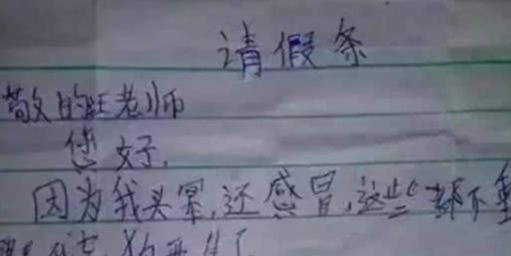 请假条
敬的旺老师
您好,
因为我头晕,还感冒,这些都不重